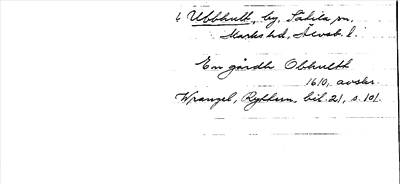 4 Ubbhult, by, Sätila sn,
Marks hd, Älvsb. l.
En gårdh Obhullth
1610, avskr.
Wrangel, Rytthern, bil. 21, s. 101.